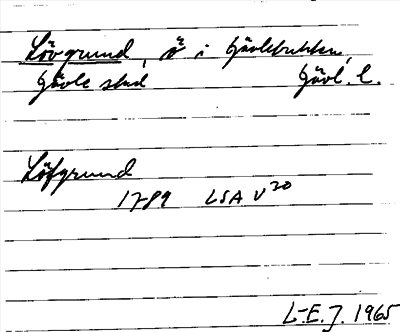 Lövgrund, ö i Gävlebukten,
Gävle stad Gävl. l.
Löfgrund
1789 LSA V20
L-E.J. 1965